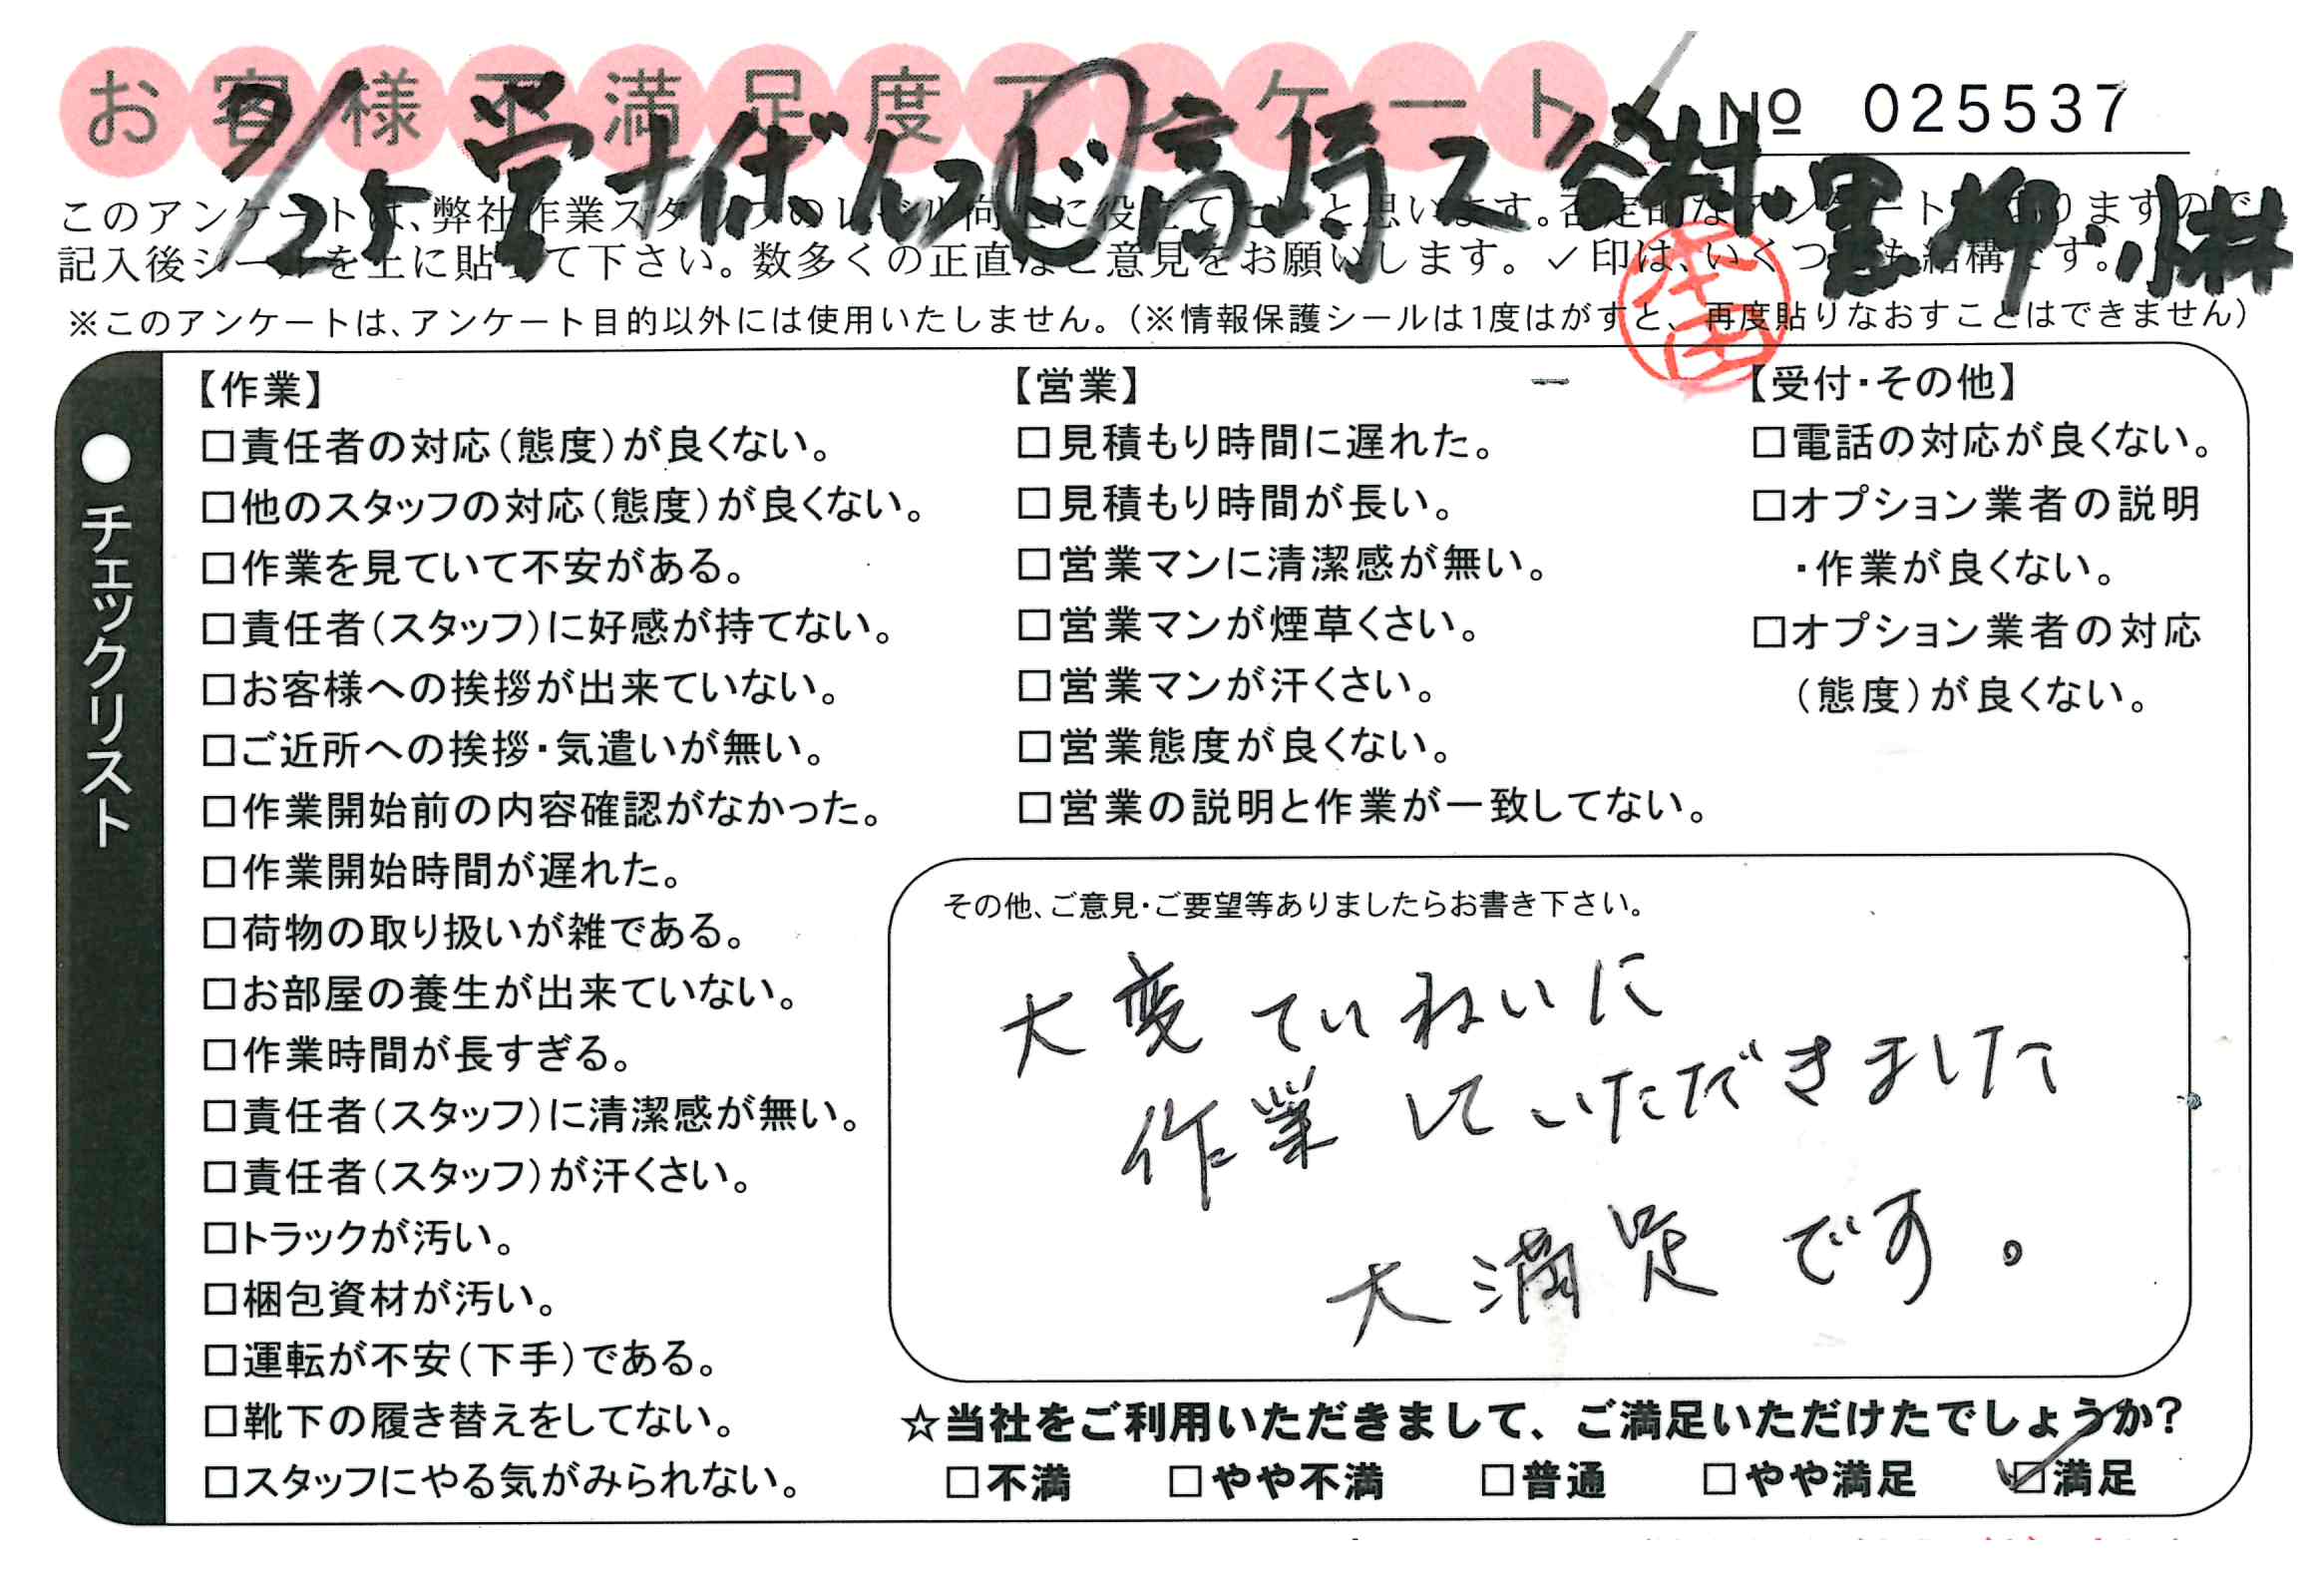 お客様不満足度アンケート
№ 025537
9/25
このアンケートは、弊社作業スタッフのレベル向上に役立てたいと思います。否定的なアンケートになりますので、
記入後シールを上に貼って下さい。数多くの正直なご意見をお願いします。✓印は、いくつでも結構です。
※このアンケートは、アンケート目的以外には使用いたしません。（※情報保護シールは1度はがすと、再度貼りなおすことはできません）
●チェックリスト
【作業】
□責任者の対応（態度）が良くない。
□他のスタッフの対応（態度）が良くない。
□作業を見ていて不安がある。
□責任者（スタッフ）に好感が持てない。
□お客様への挨拶が出来ていない。
□ご近所への挨拶・気遣いが無い。
□作業開始前の内容確認がなかった。
□作業開始時間が遅れた。
□荷物の取り扱いが雑である。
□お部屋の養生が出来ていない。
□作業時間が長すぎる。
□責任者（スタッフ）に清潔感が無い。
□責任者（スタッフ）が汗くさい。
□トラックが汚い。
□梱包資材が汚い。
□運転が不安（下手）である。
□靴下の履き替えをしてない。
□スタッフにやる気がみられない。
【営業】
□見積もり時間に遅れた。
□見積もり時間が長い。
□営業マンに清潔感が無い。
□営業マンが煙草くさい。
□営業マンが汗くさい。
□営業態度が良くない。
□営業の説明と作業が一致してない。
【受付・その他】
□電話の対応が良くない。
□オプション業者の説明
・作業が良くない。
□オプション業者の対応
（態度）が良くない。
その他、ご意見・ご要望等ありましたらお書き下さい。
大変ていねいに
作業していただきました
大満足です。
☆当社をご利用いただきまして、ご満足いただけたでしょうか？
□不満 □やや不満 □普通 □やや満足 ☑満足